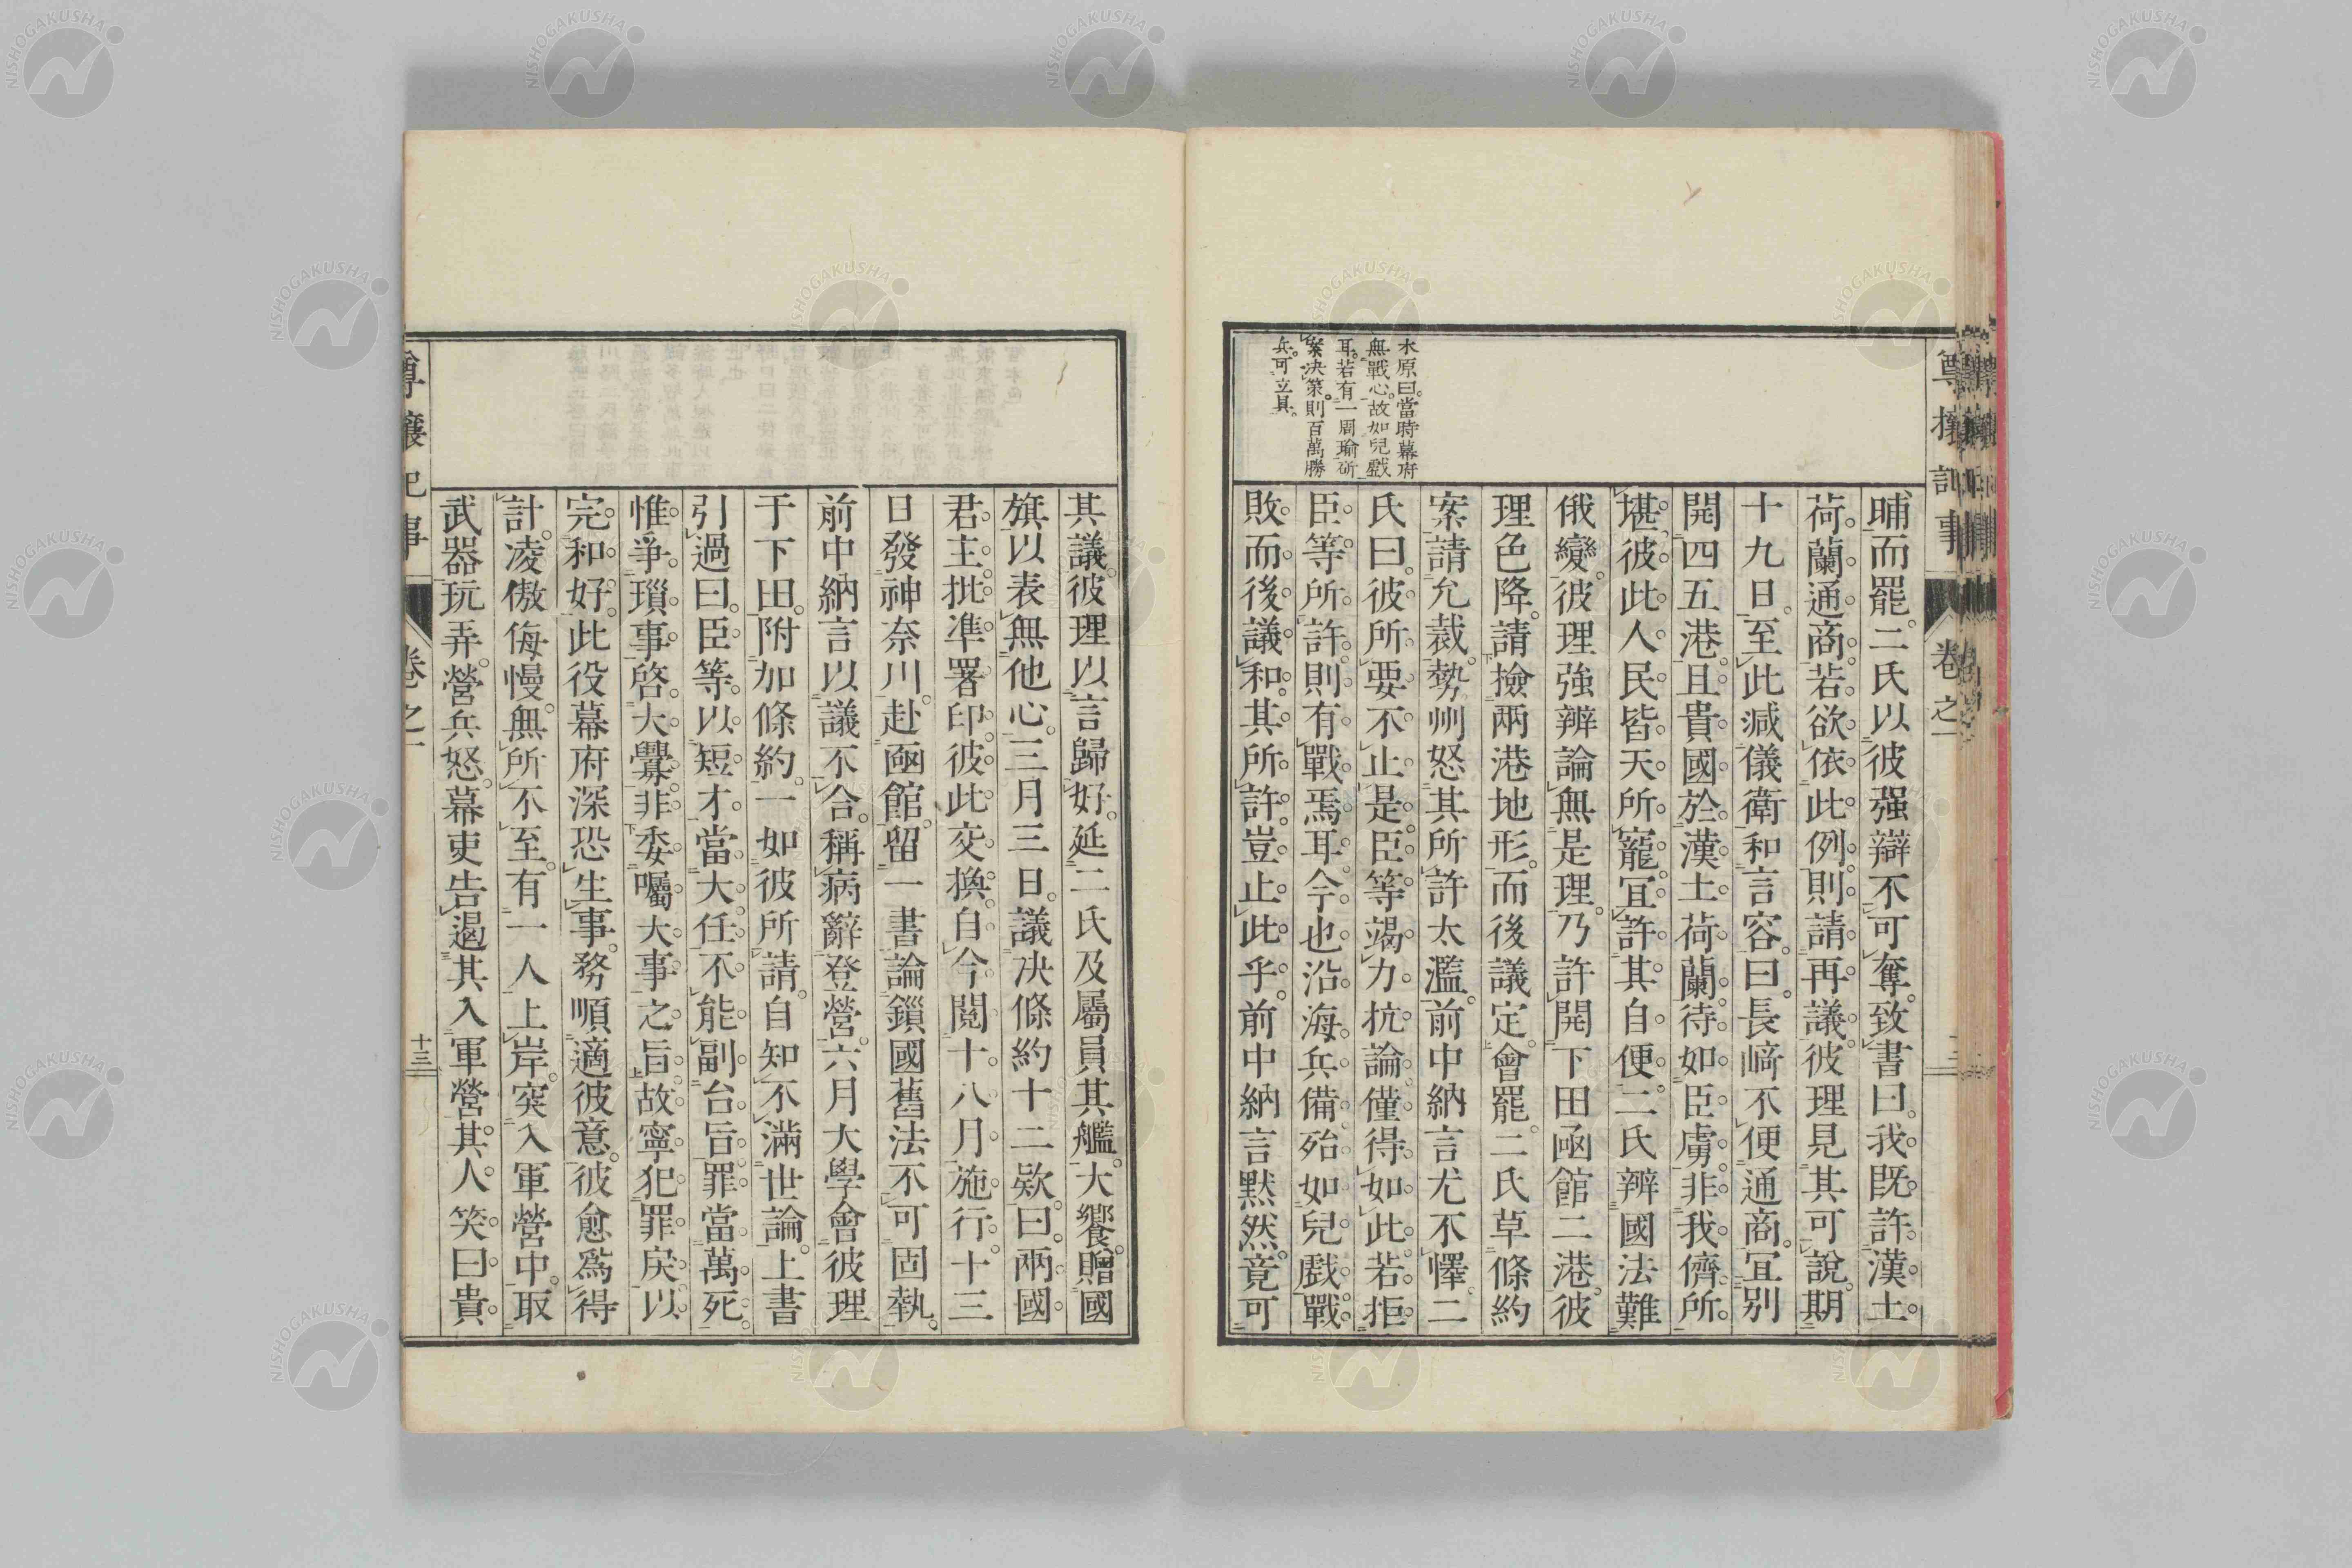 尊攘記事
卷之一
晡而罷。二氏以彼強辯不可奪。致書曰。我既許漢土
荷蘭通商。若欲依此例。則請再議。彼理見其可說。期
十九日。至此減儀衛和言容。曰。長﨑不便通商。宜別
開四五港。且貴國於漢土荷蘭。待如臣虜。非我儕所
堪。彼此人民皆天所寵。宜許其自便。二氏辨國法難
俄變。彼理強辨論無是理。乃許開下田凾館二港。彼
理色降。請撿兩港地形。而後議定。會罷。二氏草條約
案請允裁。勢州怒其所許太濫。前中納言尤不懌。二
氏曰。彼所要不止是。臣等竭力抗論。僅得如此。若拒
臣等所許。則有戰焉耳。今也沿海兵備殆如兒戲。戰
敗而後議和。其所許。豈止此乎。前中納言默然。竟可
水原曰。當時幕府
無戰心。故如兒戲
耳。若有一周瑜斫
案决策。則百萬勝
兵。可立具。
其議。彼理以言歸好。延二氏及屬員其艦。大饗。贈國
旗。以表無他心。三月三日。議决條約十二欵。曰。兩國
君主批準署印。彼此交換。自今閱十八月施行。十三
日發神奈川。赴凾館。留一書論鎖國舊法不可固執。
前中納言以議不合。稱病辭登營。六月大學會彼理
于下田。附加條約。一如彼所請。自知不滿世論。上書
引過曰。臣等以短才。當大任。不能副台旨。罪當萬死。
惟爭瑣事。啓大釁。非委囑大事之旨。故寧犯罪戾。以
完和好。此役幕府深恐生事。務順適彼意。彼愈爲得
計。凌傲侮慢。無所不至。有一人上岸。突入軍營中。取
武器玩弄。營兵怒。幕吏告遏其入軍營。其人笑曰。貴
尊攘記事
卷之一
十三